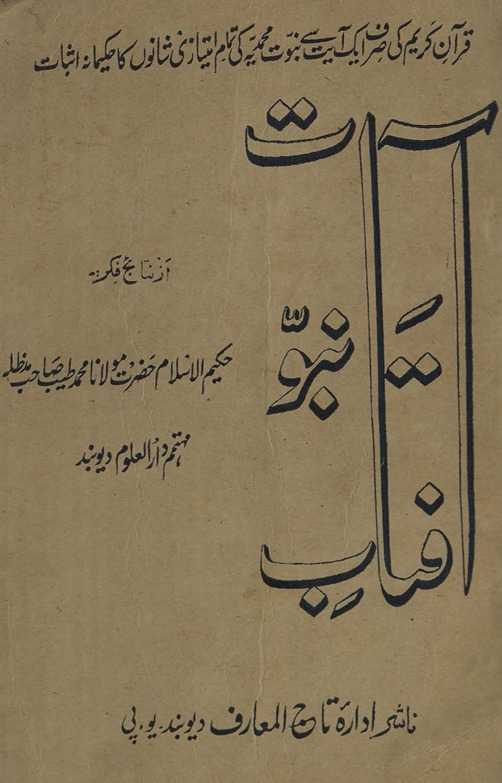 قرآن کریم کی صرف ایک آیت سے نبوت محمدیہ کی تمام امتیازی شانوں کا حکیمانہ اثبات
آفتابِ
نبوّت
از نتائج فکر:-
حکیم الاسلام حضرت مولانا محمد طیب صاحب مدظلہ
مہتمم دارالعلوم دیوبند
ناشر ادارۂ تاج المعارف دیوبند۔یو۔پی